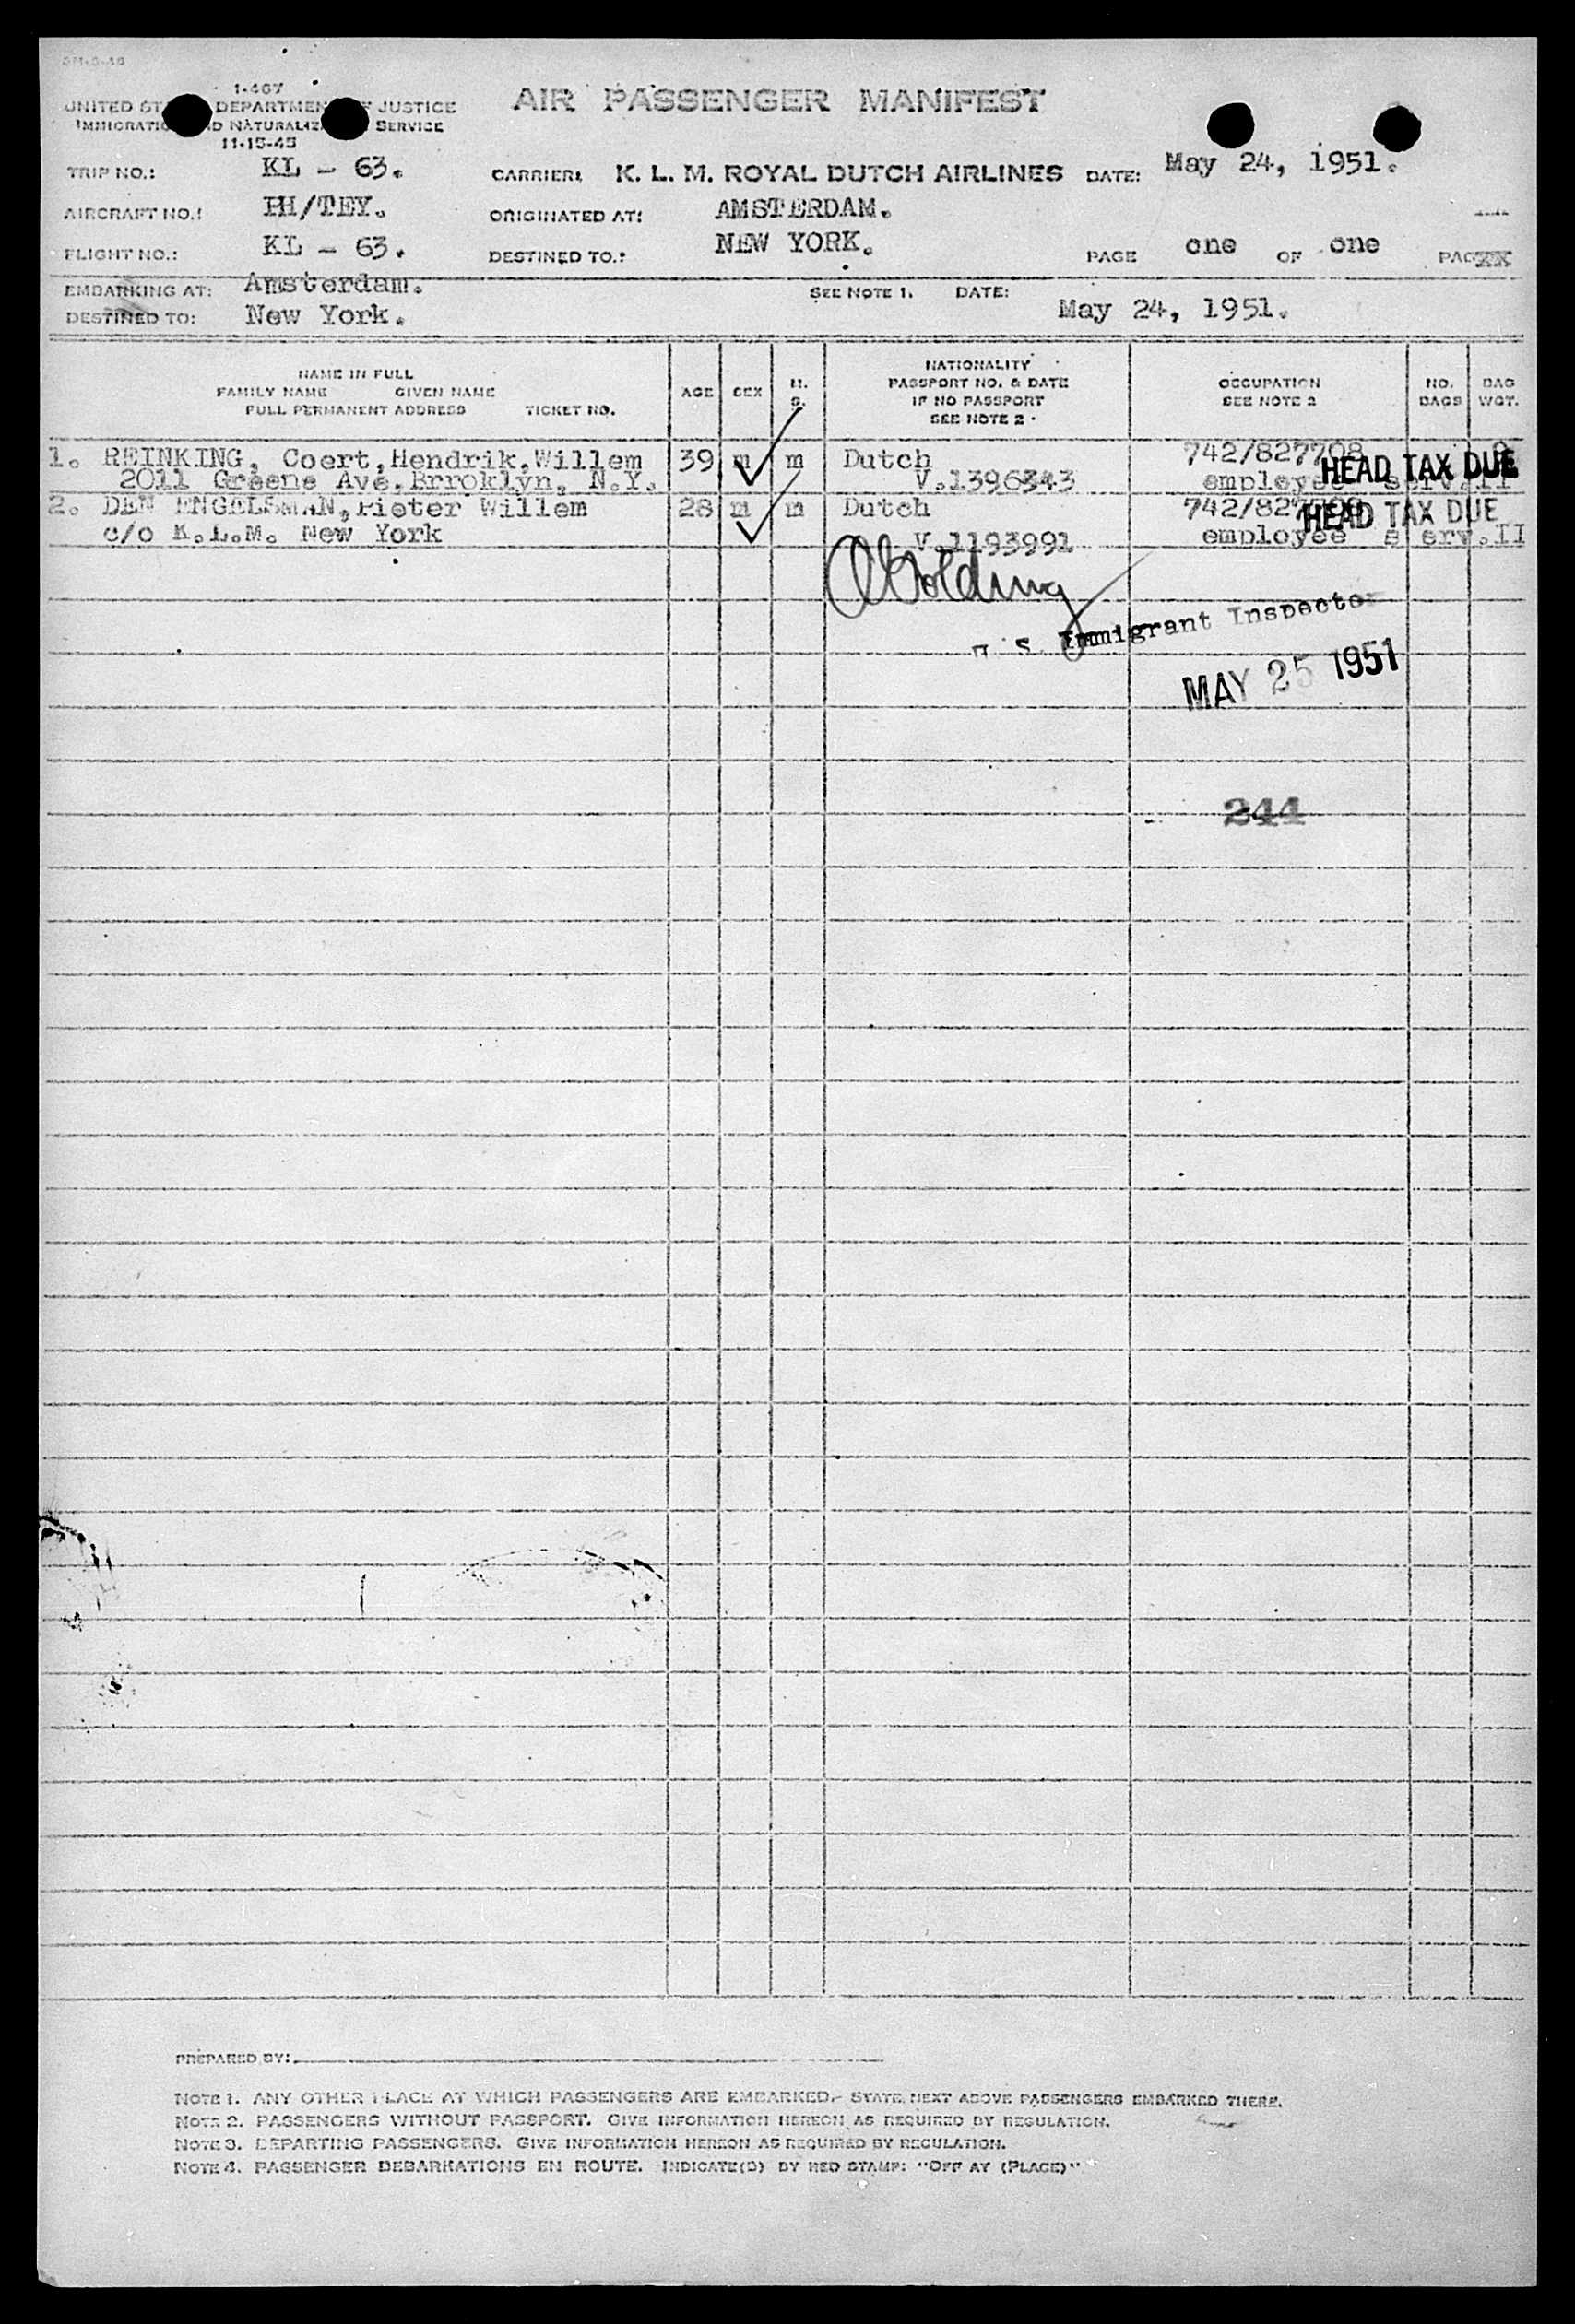 1-467
UNITED ST DEPARTMEN F JUSTICE
IMMIGRATIO ND NATURALIZ SERVICE
11-15-45
AIR PASSENGER MANIFEST
TRIP NO.: KL - 63. CARRIER: K. L. M. ROYAL DUTCH AIRLINES DATE: May 24, 1951.
AIRCRAFT NO.: PH/TEY. ORIGINATED AT: AMSTERDAM.
FLIGHT NO.: KL - 63. DESTINED TO.: NEW YORK. PAGE one OF one
EMBARKING AT: Amsterdam. SEE NOTE 1. DATE:
DESTINED TO: New York. May 24, 1951.
NAME IN FULL
FAMILY NAME GIVEN NAME
FULL PERMANENT ADDRESS TICKET NO.
AGE
SEX
M.
S.
NATIONALITY
PASSPORT NO. & DATE
IF NO PASSPORT
SEE NOTE 2
OCCUPATION
SEE NOTE 2
NO.
BAGS
BAG
WGT.
1. REINKING, Coert,Hendrik,Willem 39 m m Dutch 742/827708
2011 Greene Ave.Brroklyn, N.Y. V.1396343 employee serv.II
HEAD TAX DUE
2. DEN ENGELSMAN,Pieter Willem 28 m m Dutch
c/o K.L.M. New York V.1193991 employee s erv.II
HEAD TAX DUE
Immigrant Inspector
MAY 25 1951
244
PREPARED BY:
NOTE 1. ANY OTHER PLACE AT WHICH PASSENGERS ARE EMBARKED.- STATE NEXT ABOVE PASSENGERS EMBARKED THERE.
NOTE 2. PASSENGERS WITHOUT PASSPORT. GIVE INFORMATION HEREON AS REQUIRED BY REGULATION.
NOTE 3. DEPARTING PASSENGERS. GIVE INFORMATION HEREON AS REQUIRED BY REGULATION.
NOTE 4. PASSENGER DEBARKATIONS EN ROUTE. INDICATE(D) BY RED STAMP: "OFF AT (PLACE)"